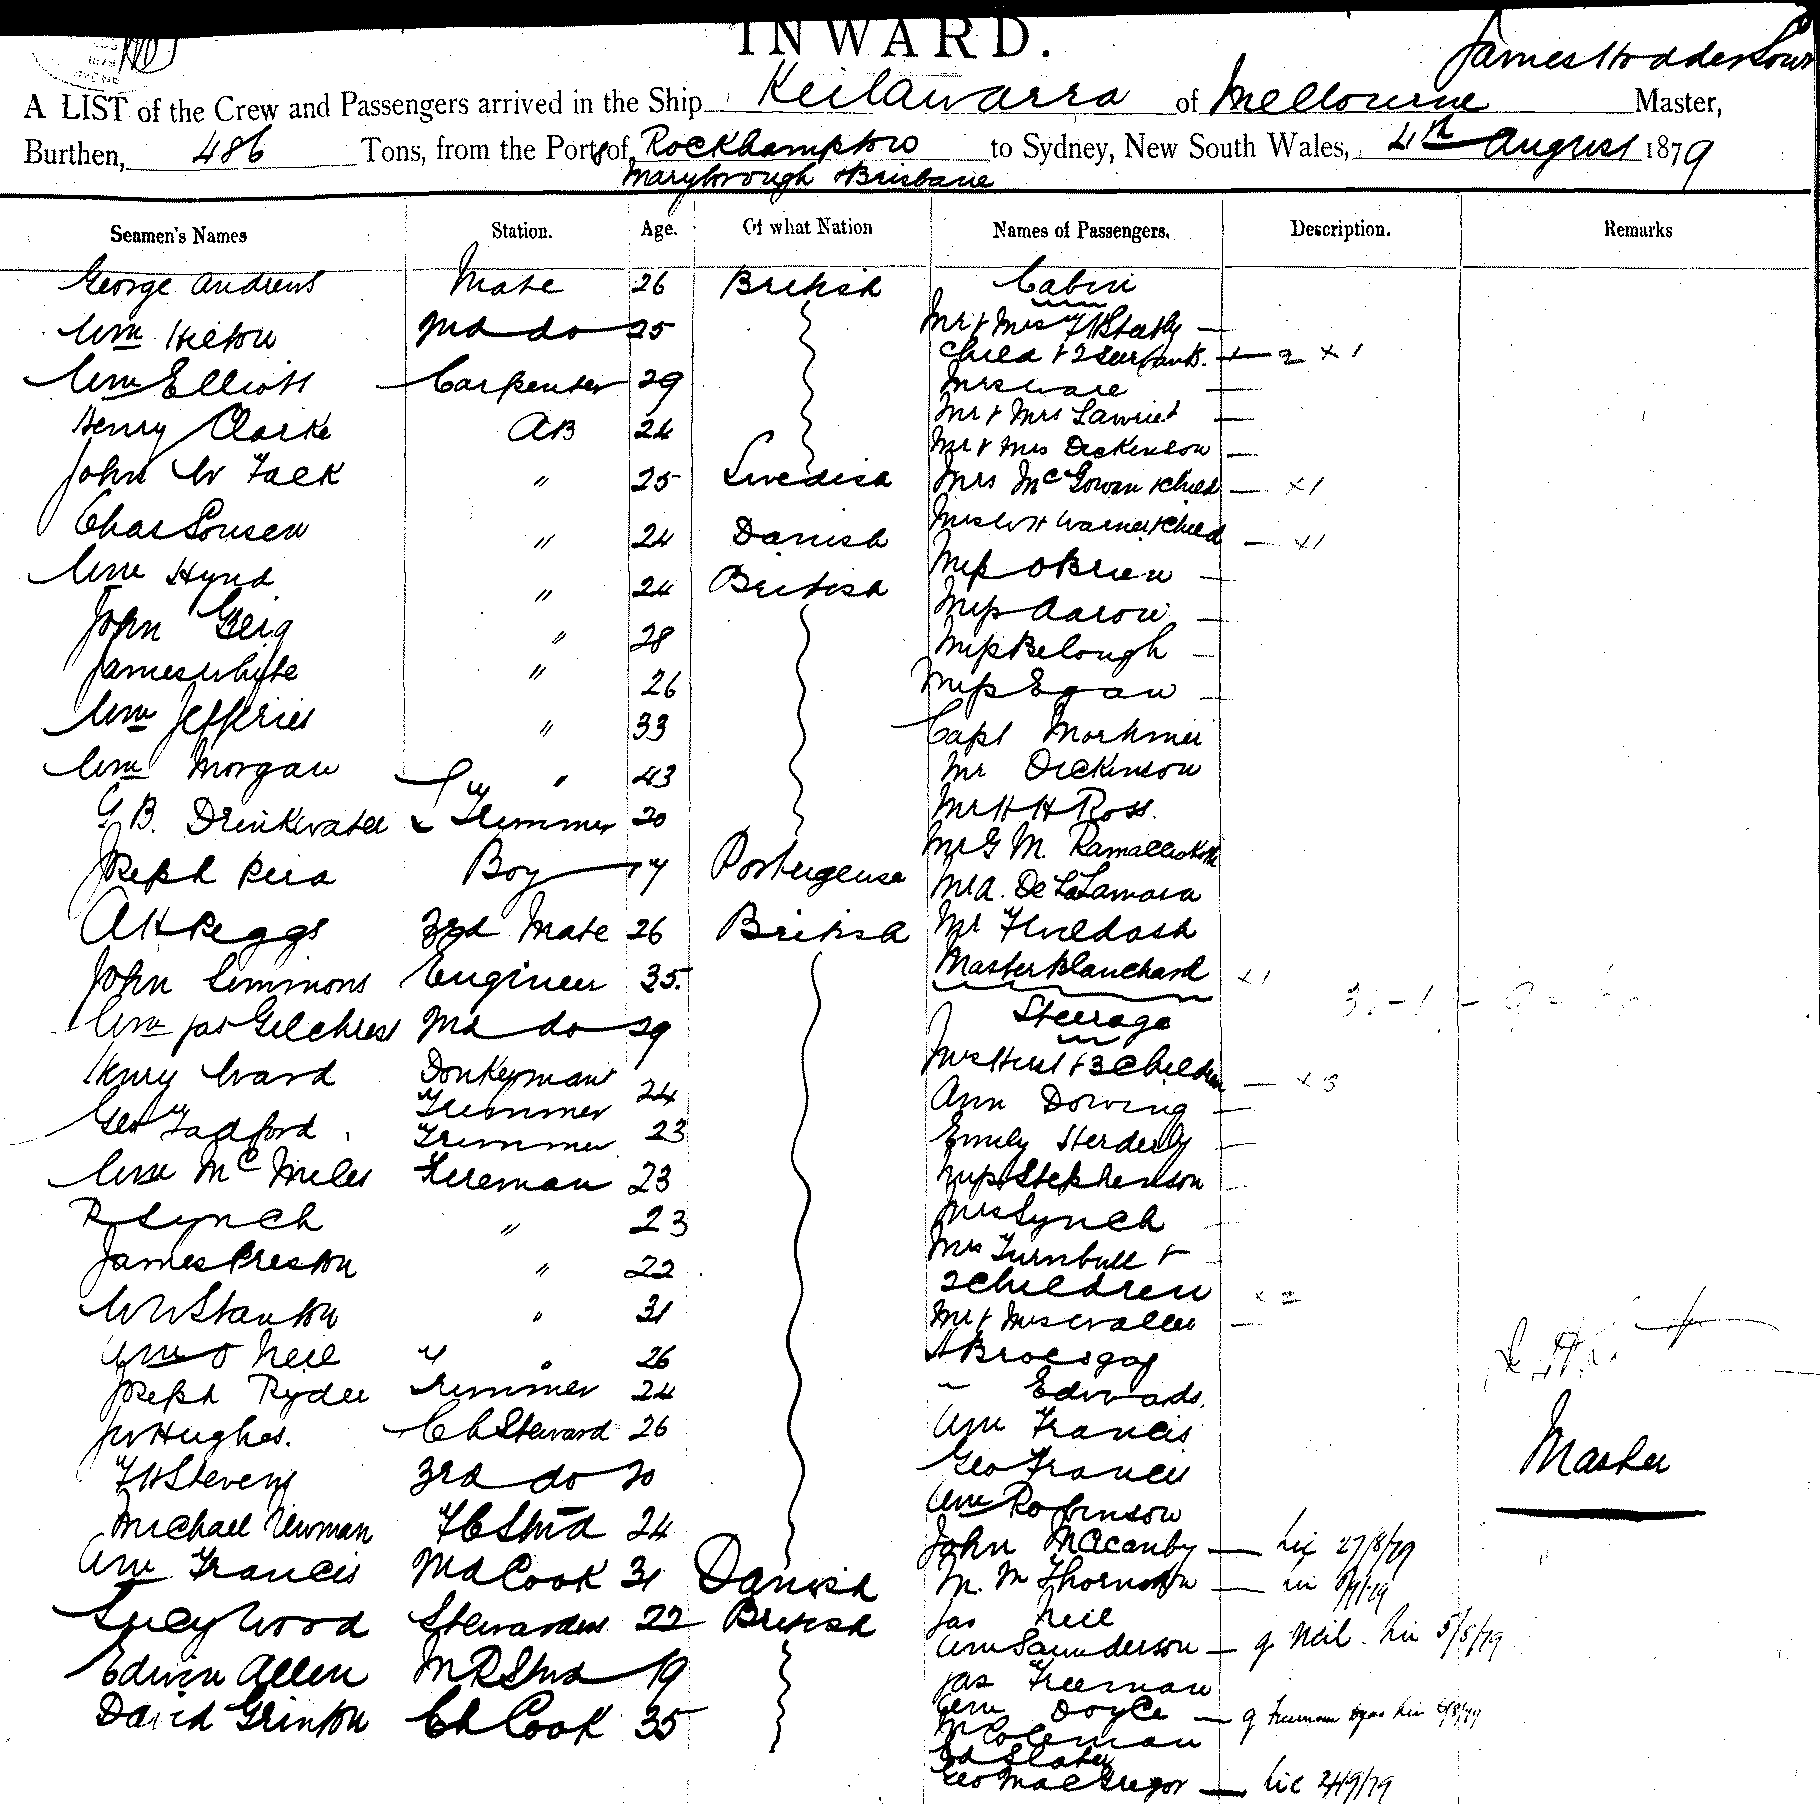 INWARD.
James Hodder
A LIST of the Crew and Passengers arrived in the Ship Keilawarra of Melbourne Master,
Burthen, 486 Tons, from the Port of Rockhampton to Sydney, New South Wales, 4th August 1879
Maryborough & Brisbane
Seamen's Names Station. Age. Of what Nation Names of Passengers. Description. Remarks
George Andrews Mate 26 British Cabin
Wm Hilton 2nd do 25 Mr & Mrs
Child & 2 Servants. 2 x 1
Wm Elliott Carpenter 29 Mrs Ware
Henry Clarke AB 24 Mr & Mrs
Mr & Mrs Dickenson
John W Falk " 25 Swedish Mrs McGowan & Child x1
Chas Sonsen " 24 Danish Mrs W H Warner & Child x1
Wm Hynd " 24 British Miss O Brien
Miss Aaron
John Greig " 28 Miss Belough
James Whyte " 26 Miss Egan
Wm Jefferies " 33 Capt Mortimer
Wm Morgan " 43 Mr Dickinson
G B. Drinkwater Trimmer 20 Mr H H Ross.
Mr G M.
Joseph Pera Boy 17 Portugeuse Mr A. De La Lamara
A H Peggs 3rd Mate 26 British Mr
John Simmons Engineer 35. Master Blanchard x1
Wm Jas Gilchrist 2nd do 29 Steerage
Henry Ward Donkeyman 24 Mrs Hurl & 3 Children x 3
Trimmer Ann Dowing
Geo Tadford Trimmer 23 Emily
Wm Mc Miles Fireman 23 Miss Stephenson
R Lynch " 23 Mrs Lynch
James Preston " 22 Mrs Turnbull &
2 Children x 2
W W Stanton " 31 Mr & Mrs Wallee
Wm O Neil " 26 A
Joseph Ryder Trimmer 24 " Edwards
J W Hughes. Ch Steward 26 Wm Francis
F H Stevens 3rd do 20 Geo Francis
Master
Wm Robinson
Michael Newman F C Stwd 24 John McCanby Lic 27/8/79
Wm Francis 2nd Cook 31 Danish M. M Thornton
Lucy Wood Stewardess 22 British Jas Neil
Wm Saunderson g Neil. Lic 5/8/79
Edwin Allen M R Stwd 19 Jas Freeman
David Grinton Ch Cook 35 Wm Doyle g Freeman
M Coleman
Ed Slater
Geo MacGregor Lic 24/9/79